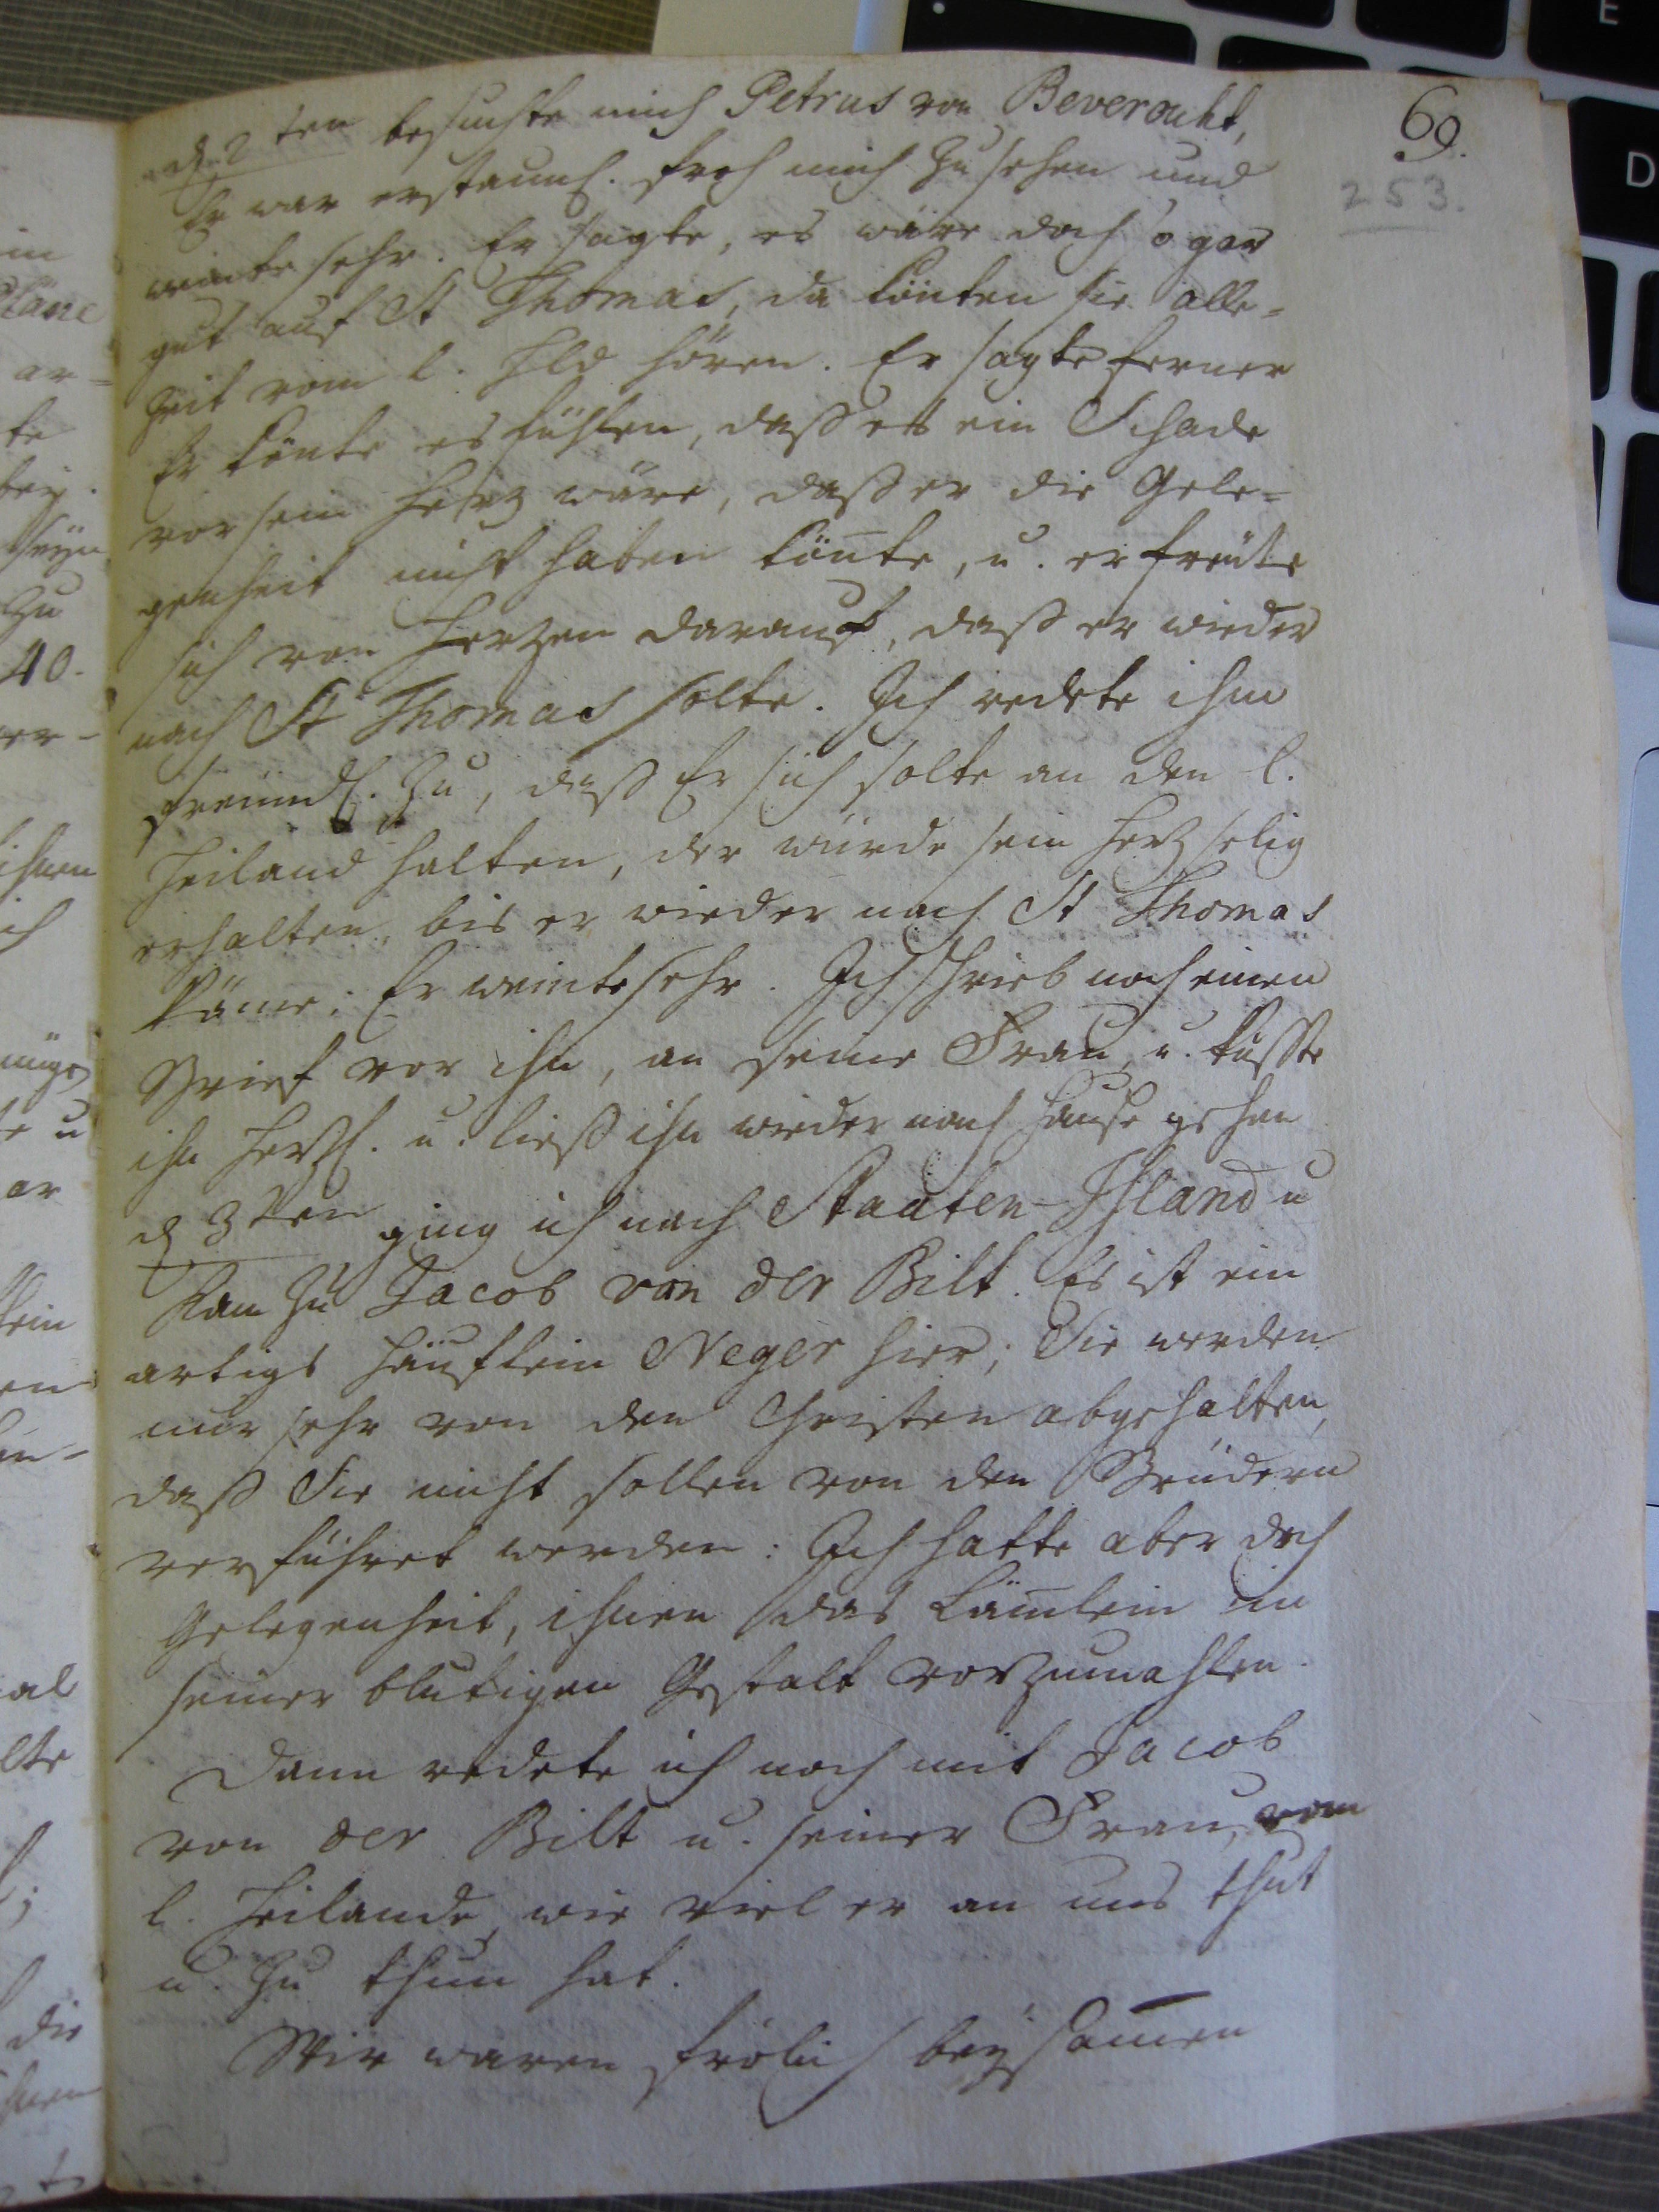 69.
253.
d. 2ten besuchte mich Petrus von Beverouht,
Er war erstaunl. froh mich zu sehen und
weinte sehr. Er sagte, es wäre doch so gar
gut auf St Thomas, da könten sie alle=
zeit vom l. Hld hören. Er sagte ferner
Er könte es fühlen, daß es ein Schade
vor sein Herz wäre, daß er die Gele=
genheit nicht haben kön̄te, u. er freute
sich von Herzen darauf, daß er wieder
nach St Thomas solte. Ich redete ihm
freundl. zu, daß Er sich solte an den l.
Heiland halten, der würde sein Herz selig
erhalten, bis er wieder nach St Thomas
käme; Er weinte sehr. Ich schrieb noch einen
Brief vor ihn, an seine Frau, u. küßte
ihn herzl. u. ließ ihn wieder nach Hause gehen
d 3ten ging ich nach Staaten-Island u
kam zu Jacob von der Bilt. Es ist ein
artiges Häuflein Neger hier; Sie werden
nur sehr von den Christen abgehalten,
daß Sie nicht sollen von den Brüdern
verführet werden: Ich hatte aber doch
Gelegenheit, ihnen das Läm̄lein in
seiner blutigen Gestalt vorzumahlen.
Dann redete ich noch mit Jacob
von der Bilt u. seiner Frau, vom
l. Heilande, wie viel er an uns thut
u. zu thun hat.
Wir waren frölich beysam̄en